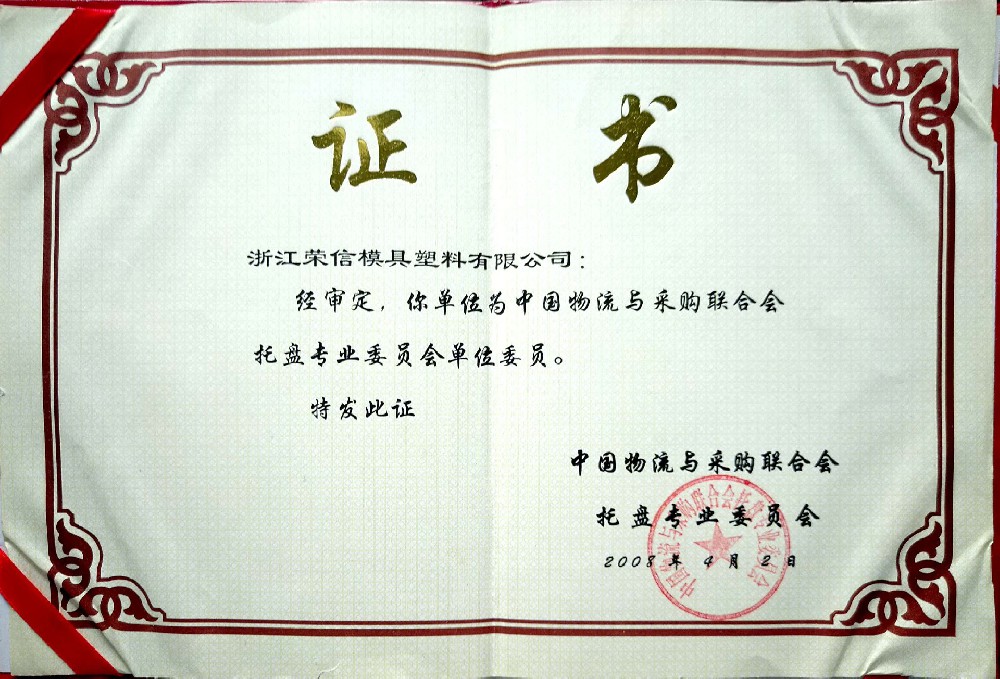 证 书
浙江荣信模具塑料有限公司：
经审定，你单位为中国物流与采购联合会
托盘专业委员会单位委员。
特发此证
中国物流与采购联合会
托盘专业委员会
2008 年 4 月 2 日
中国物流与采购联合会托盘专业委员会